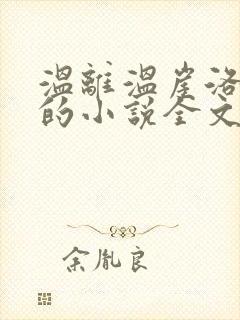 溫離溫崖洛
的小說全文
余胤良